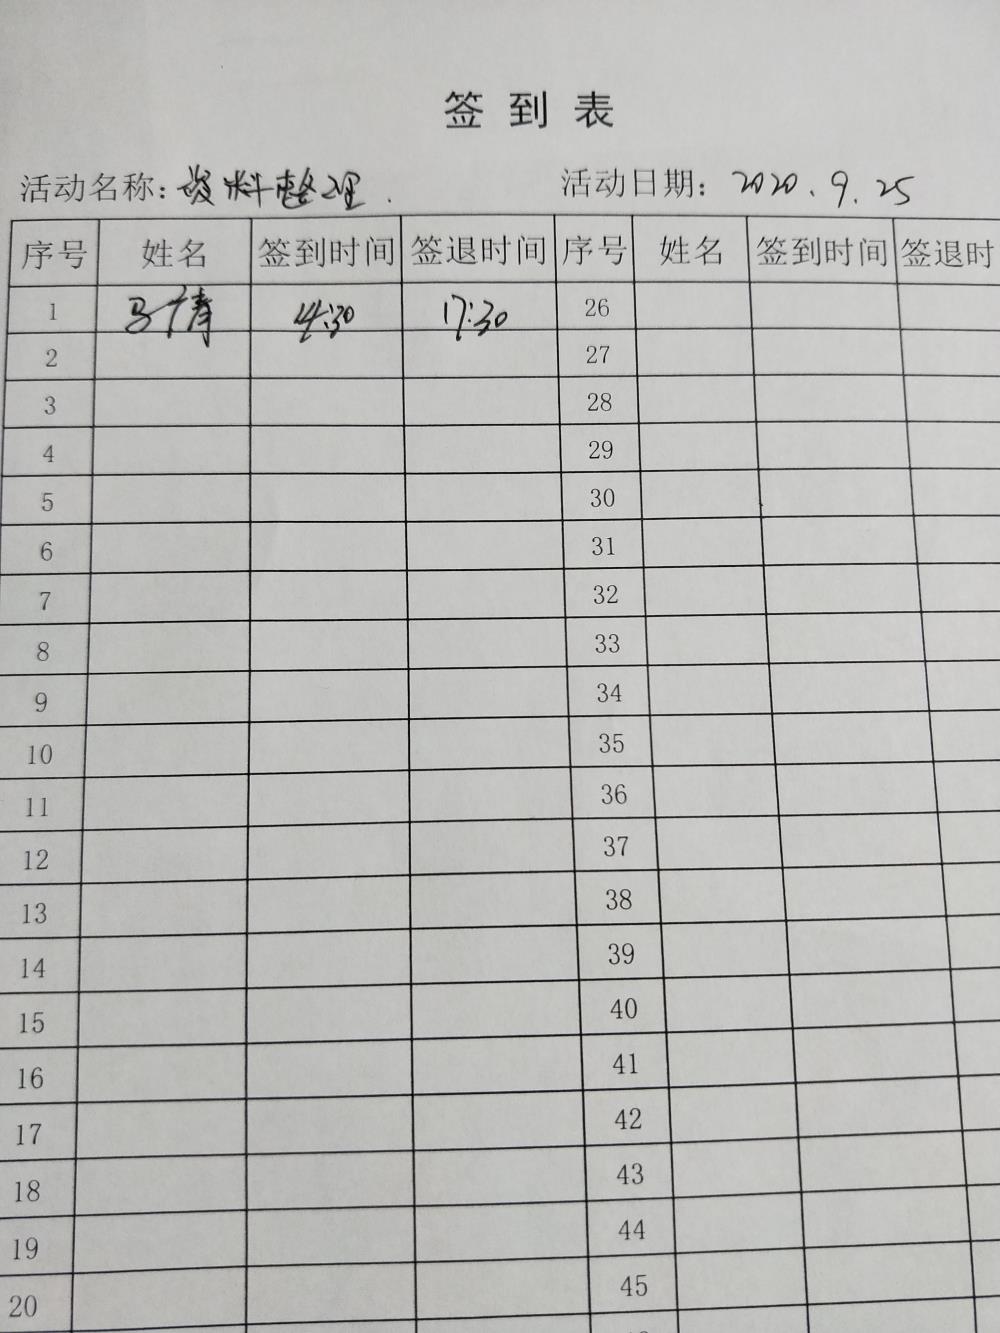 签到表
活动名称：资料整理. 活动日期：2020.9.25
序号 姓名 签到时间 签退时间 序号 姓名 签到时间 签退时
1 14:30 17:30 26
2 27
3 28
4 29
5 30
6 31
7 32
8 33
9 34
10 35
11 36
12 37
13 38
14 39
15 40
16 41
17 42
18 43
19 44
20 45